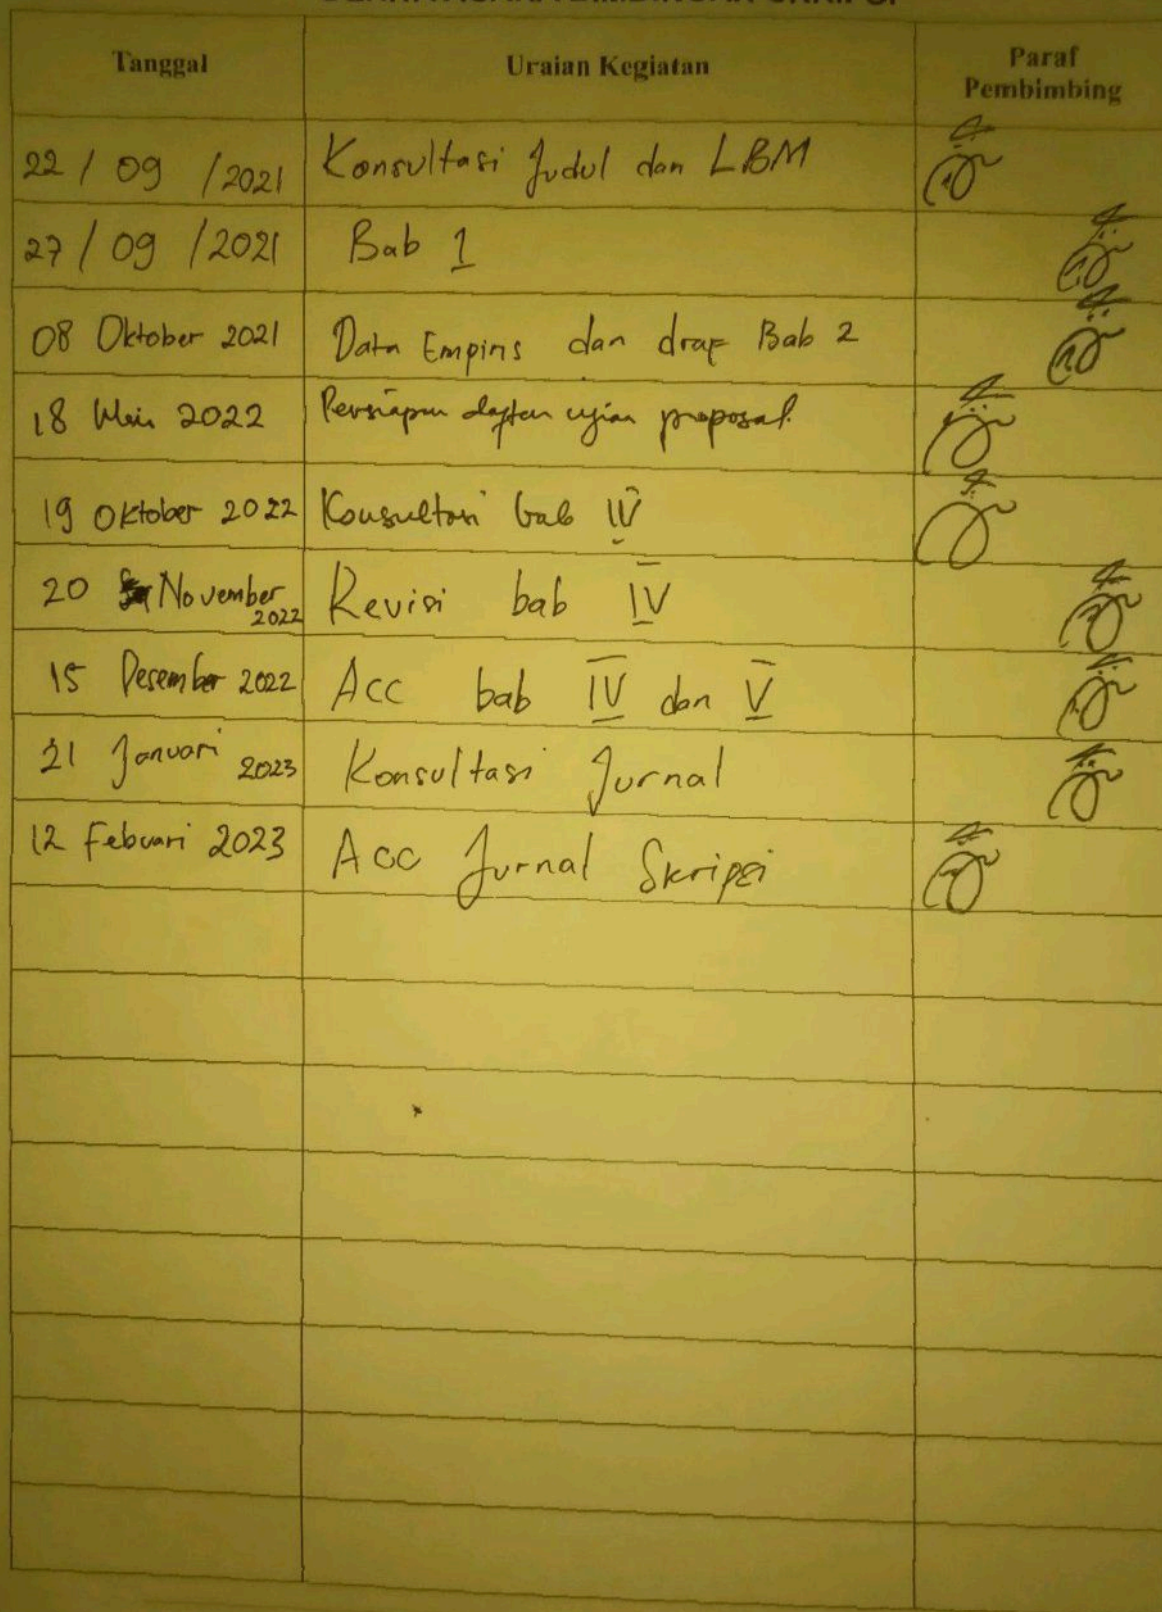 Tanggal Uraian Kegiatan Paraf
Pembimbing
22 / 09 / 2021 Konsultasi Judul dan LBM
27 / 09 / 2021 Bab 1
08 Oktober 2021 Data Empiris dan draf Bab 2
18 Mei 2022 Persiapan daftar ujian proposal.
19 Oktober 2022 Konsultasi bab IV
20 November 2022 Revisi bab IV
15 Desember 2022 Acc bab IV dan V
21 Januari 2023 Konsultasi Jurnal
12 Febuari 2023 Acc Jurnal Skripsi